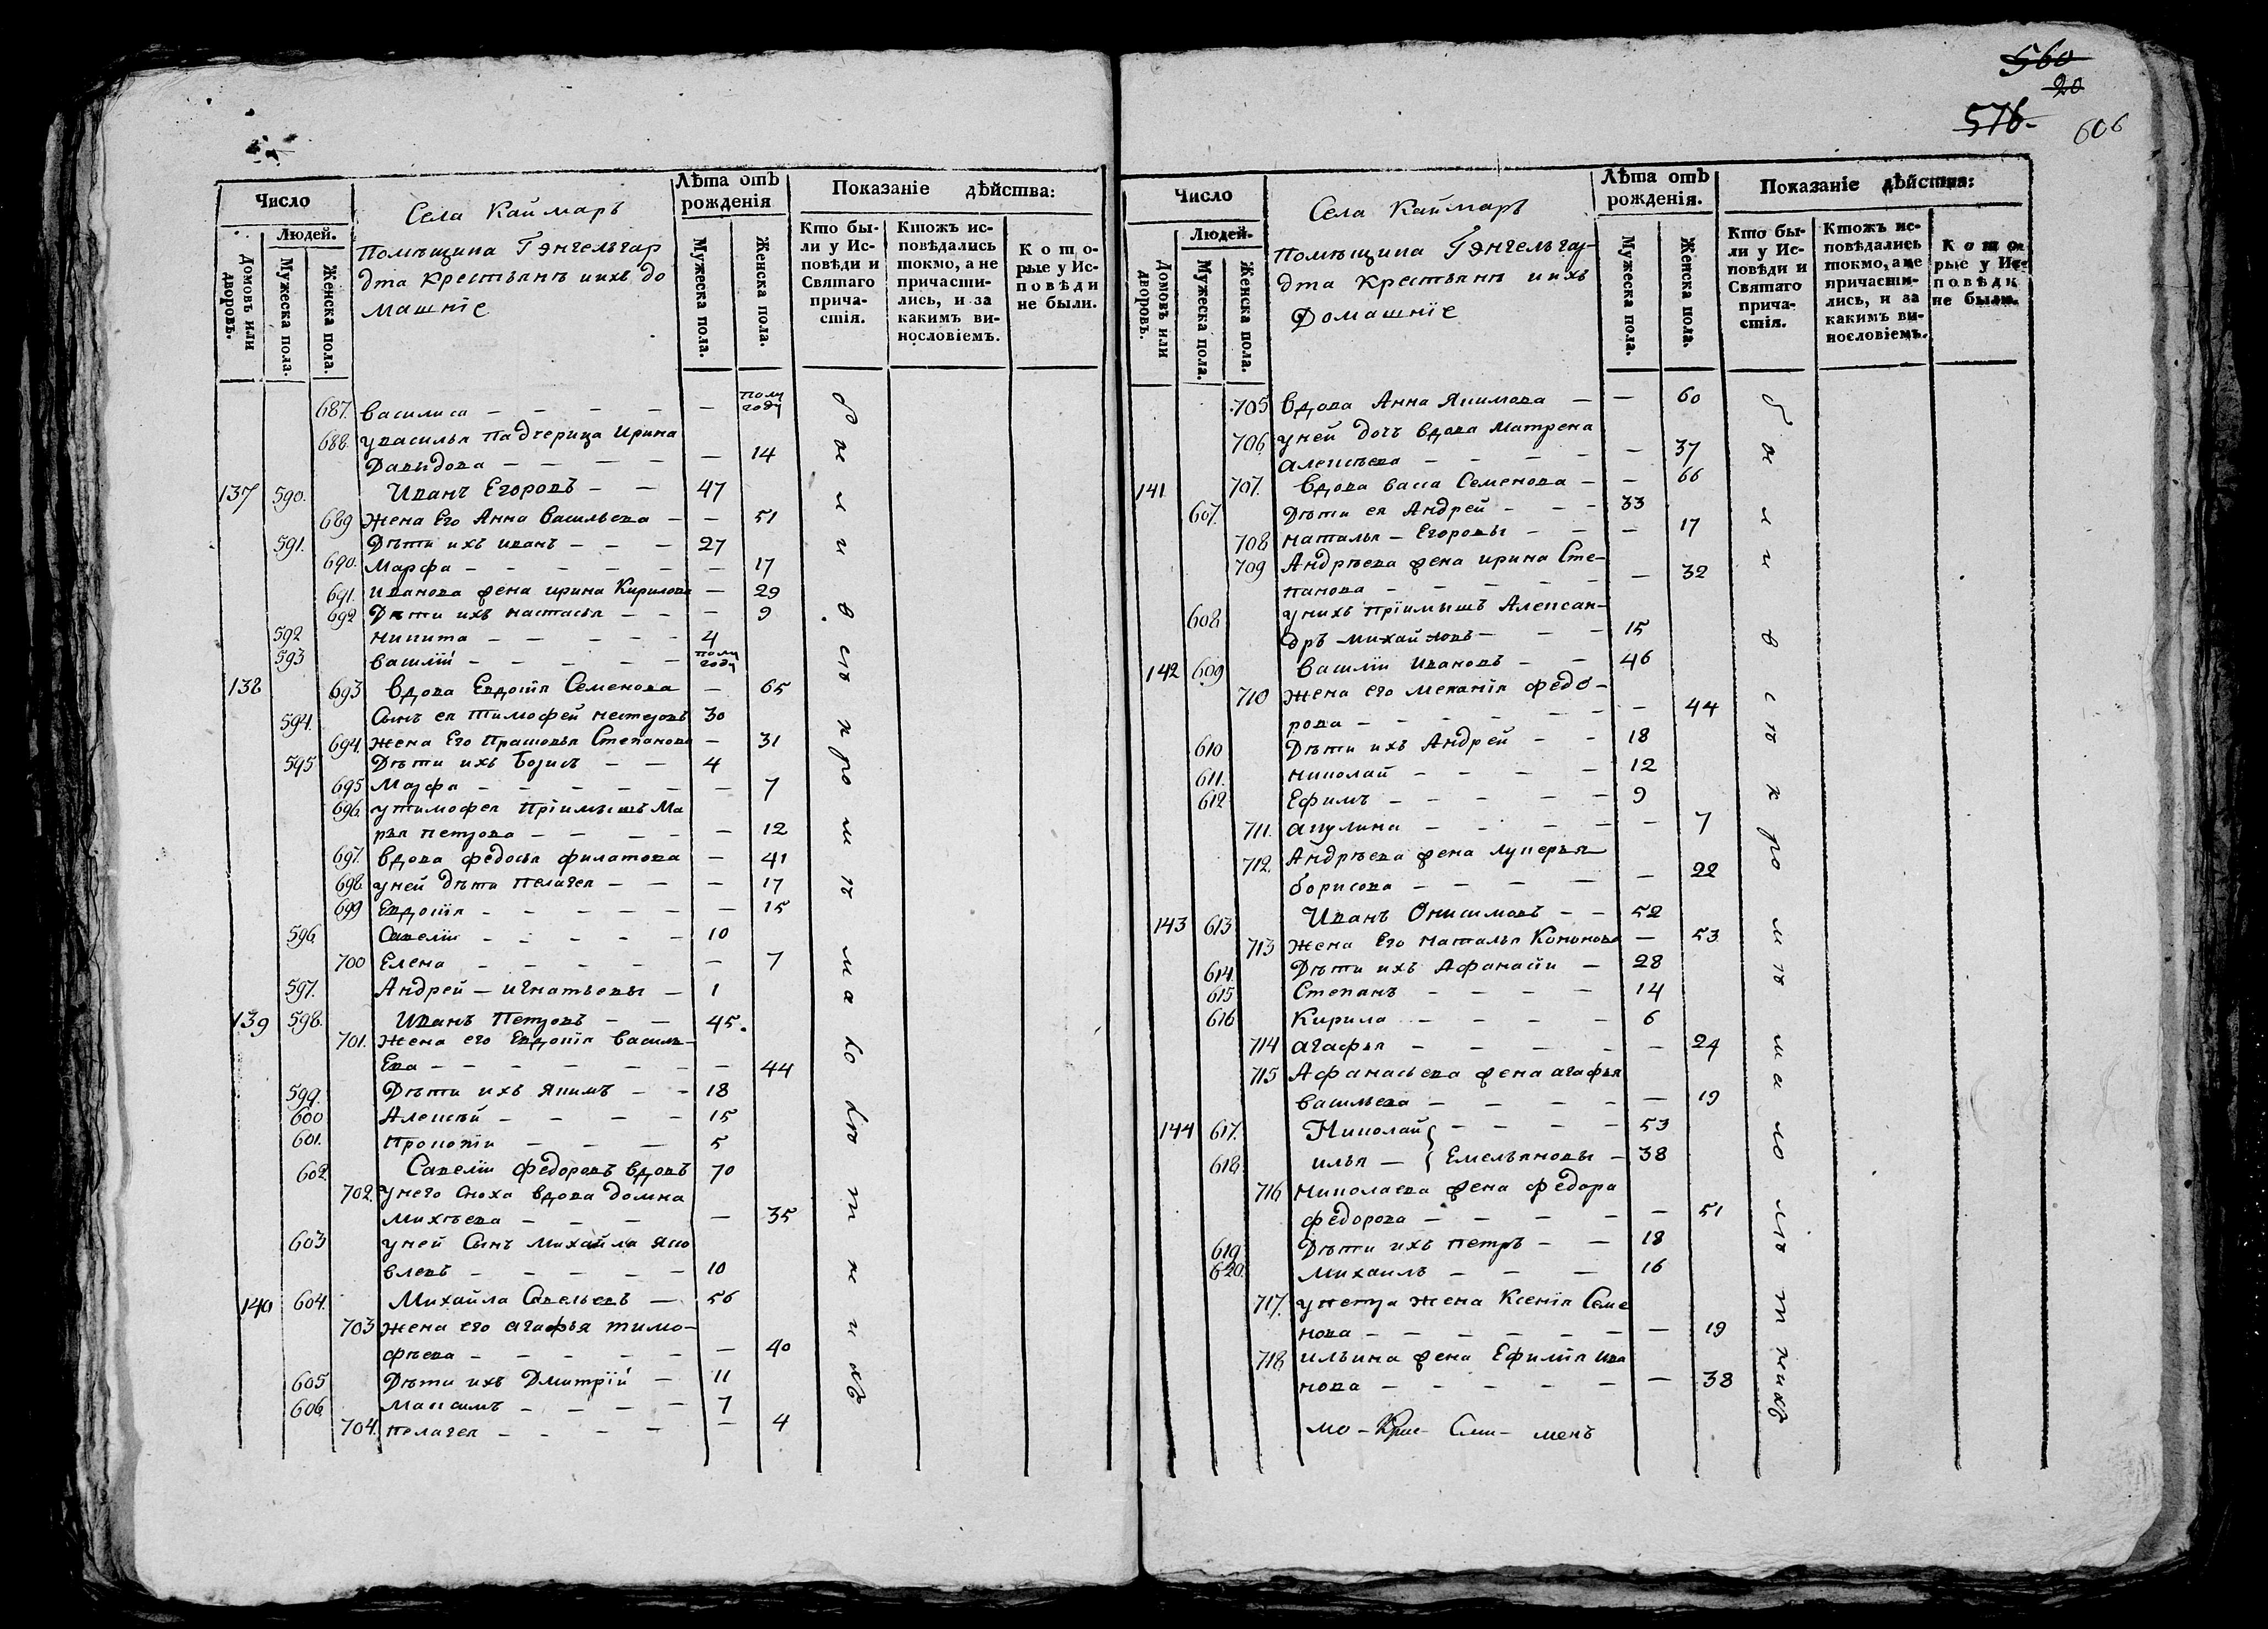 560
20
576.
606
Число
Села Каймаръ
Лѣта отъ рожденія
Показаніе дѣйства:
Людей.
Помѣщика Гэнгельгар
дта крестьянъ и ихъ до
машніе
Домовъ или дворовъ.
Мужеска пола.
Женска пола.
Мужеска пола.
Женска пола.
Кто бы-
ли у Ис-
повѣди и
Святаго
прича-
стія.
Ктожъ ис-
повѣдались
токмо, а не
причасти-
лись, и за
какимъ ви-
нословіемъ.
Кото-
рые у Ис-
повѣди
не были.
687. Василиса — — полугоду
688. у василья падчерица Ирина
Давидова — — 14
137 590. Иванъ Егоровъ — 47
689 жена Его Анна Васильева — 51
591. Дѣти ихъ иванъ — 27
690. Марфа — — 17
691. Иванова жена ирина Кирилова — 29
692 Дѣти ихъ настасья — 9
592 никита — — 4
593 василій — — полугоду
138 693 Вдова Евдокія Семенова — 65
594. Сынъ ея тимофей нестеровъ 30
694. жена Его Прасковья Степанова — 31
595 Дѣти ихъ Борисъ — 4
695 Марфа — — 7
696. у тимофея пріимышъ Ма
рья петрова — — 12
697. вдова федосья филатова — 41
698. у ней дѣти пелагея — 17
699 Евдокія — — 15
596 Савелій — — 10
700 Елена — — 7
597. Андрей — игнатьевы — 1
139 598. Иванъ Петровъ — 45.
701. жена его Евдокія василь-
Ева — — 44
599. Дѣти ихъ якимъ — 18
600 Алексѣй — — 15
601. Прокопій — — 5
602 Савелій федоровъ вдовъ 70
702. у него сноха вдова домна
михѣева — — 35
603 у ней Сынъ михайла яко
влевъ — — 10
140 604. Михайла Савельевъ — 56
703 жена его агафья тимо-
фѣева — — 40
605 Дѣти ихъ Дмитрій — 11
606 Максимъ — — 7
704. пелагея — — 4
Число
Села Каймаръ
Лѣта отъ рожденія.
Показаніе дѣйства:
Людей.
Помѣщика Гэнгельгар-
дта крестьянъ и ихъ
Домашніе
Домовъ или дворовъ.
Мужеска пола.
Женска пола.
Мужеска пола.
Женска пола.
Кто бы-
ли у Ис-
повѣди и
Святаго
прича-
стія.
Ктожъ ис-
повѣдались
токмо, а не
причасти-
лись, и за
какимъ ви-
нословіемъ.
Кото-
рые у Ис-
повѣди
не были.
705 вдова Анна Якимова — — 60
706 у ней дочь вдова Матрена
алексѣева — — 37
141 707. Вдова васса Семенова — 66
607. Дѣти ея Андрей — 33
708 наталья — Егоровы — 17
709 Андрѣева жена ирина Сте-
панова — — 32
608 у нихъ пріимышъ Алексан-
дръ михайловъ — 15
142 609 Василій Ивановъ — 46
710 жена его меланія федо-
рова — — 44
610 Дѣти ихъ Андрей — 18
611. николай — — 12
612 Ефимъ — — 9
711. акулина — — 7
712. Андрѣева жена лукерья
борисова — — 22
143 613 Иванъ Онисимовъ — 52
713 жена Его наталья Кононова — 53
614 Дѣти ихъ Афанасій — 28
615 Степанъ — — 14
616 Кирила — — 6
714 агафья — — 24
715 Афанасьева жена агафья
васильева — — 19
144 617. Николай { — 53
618 илья — { Емельяновы — 38
716 николаева жена федора
федорова — — 51
619 Дѣти ихъ петръ — 18
620. михаилъ — — 16
717. у петра жена Ксенія Семе
нова — — 19
718 ильина жена Ефимія ива
нова — — 38